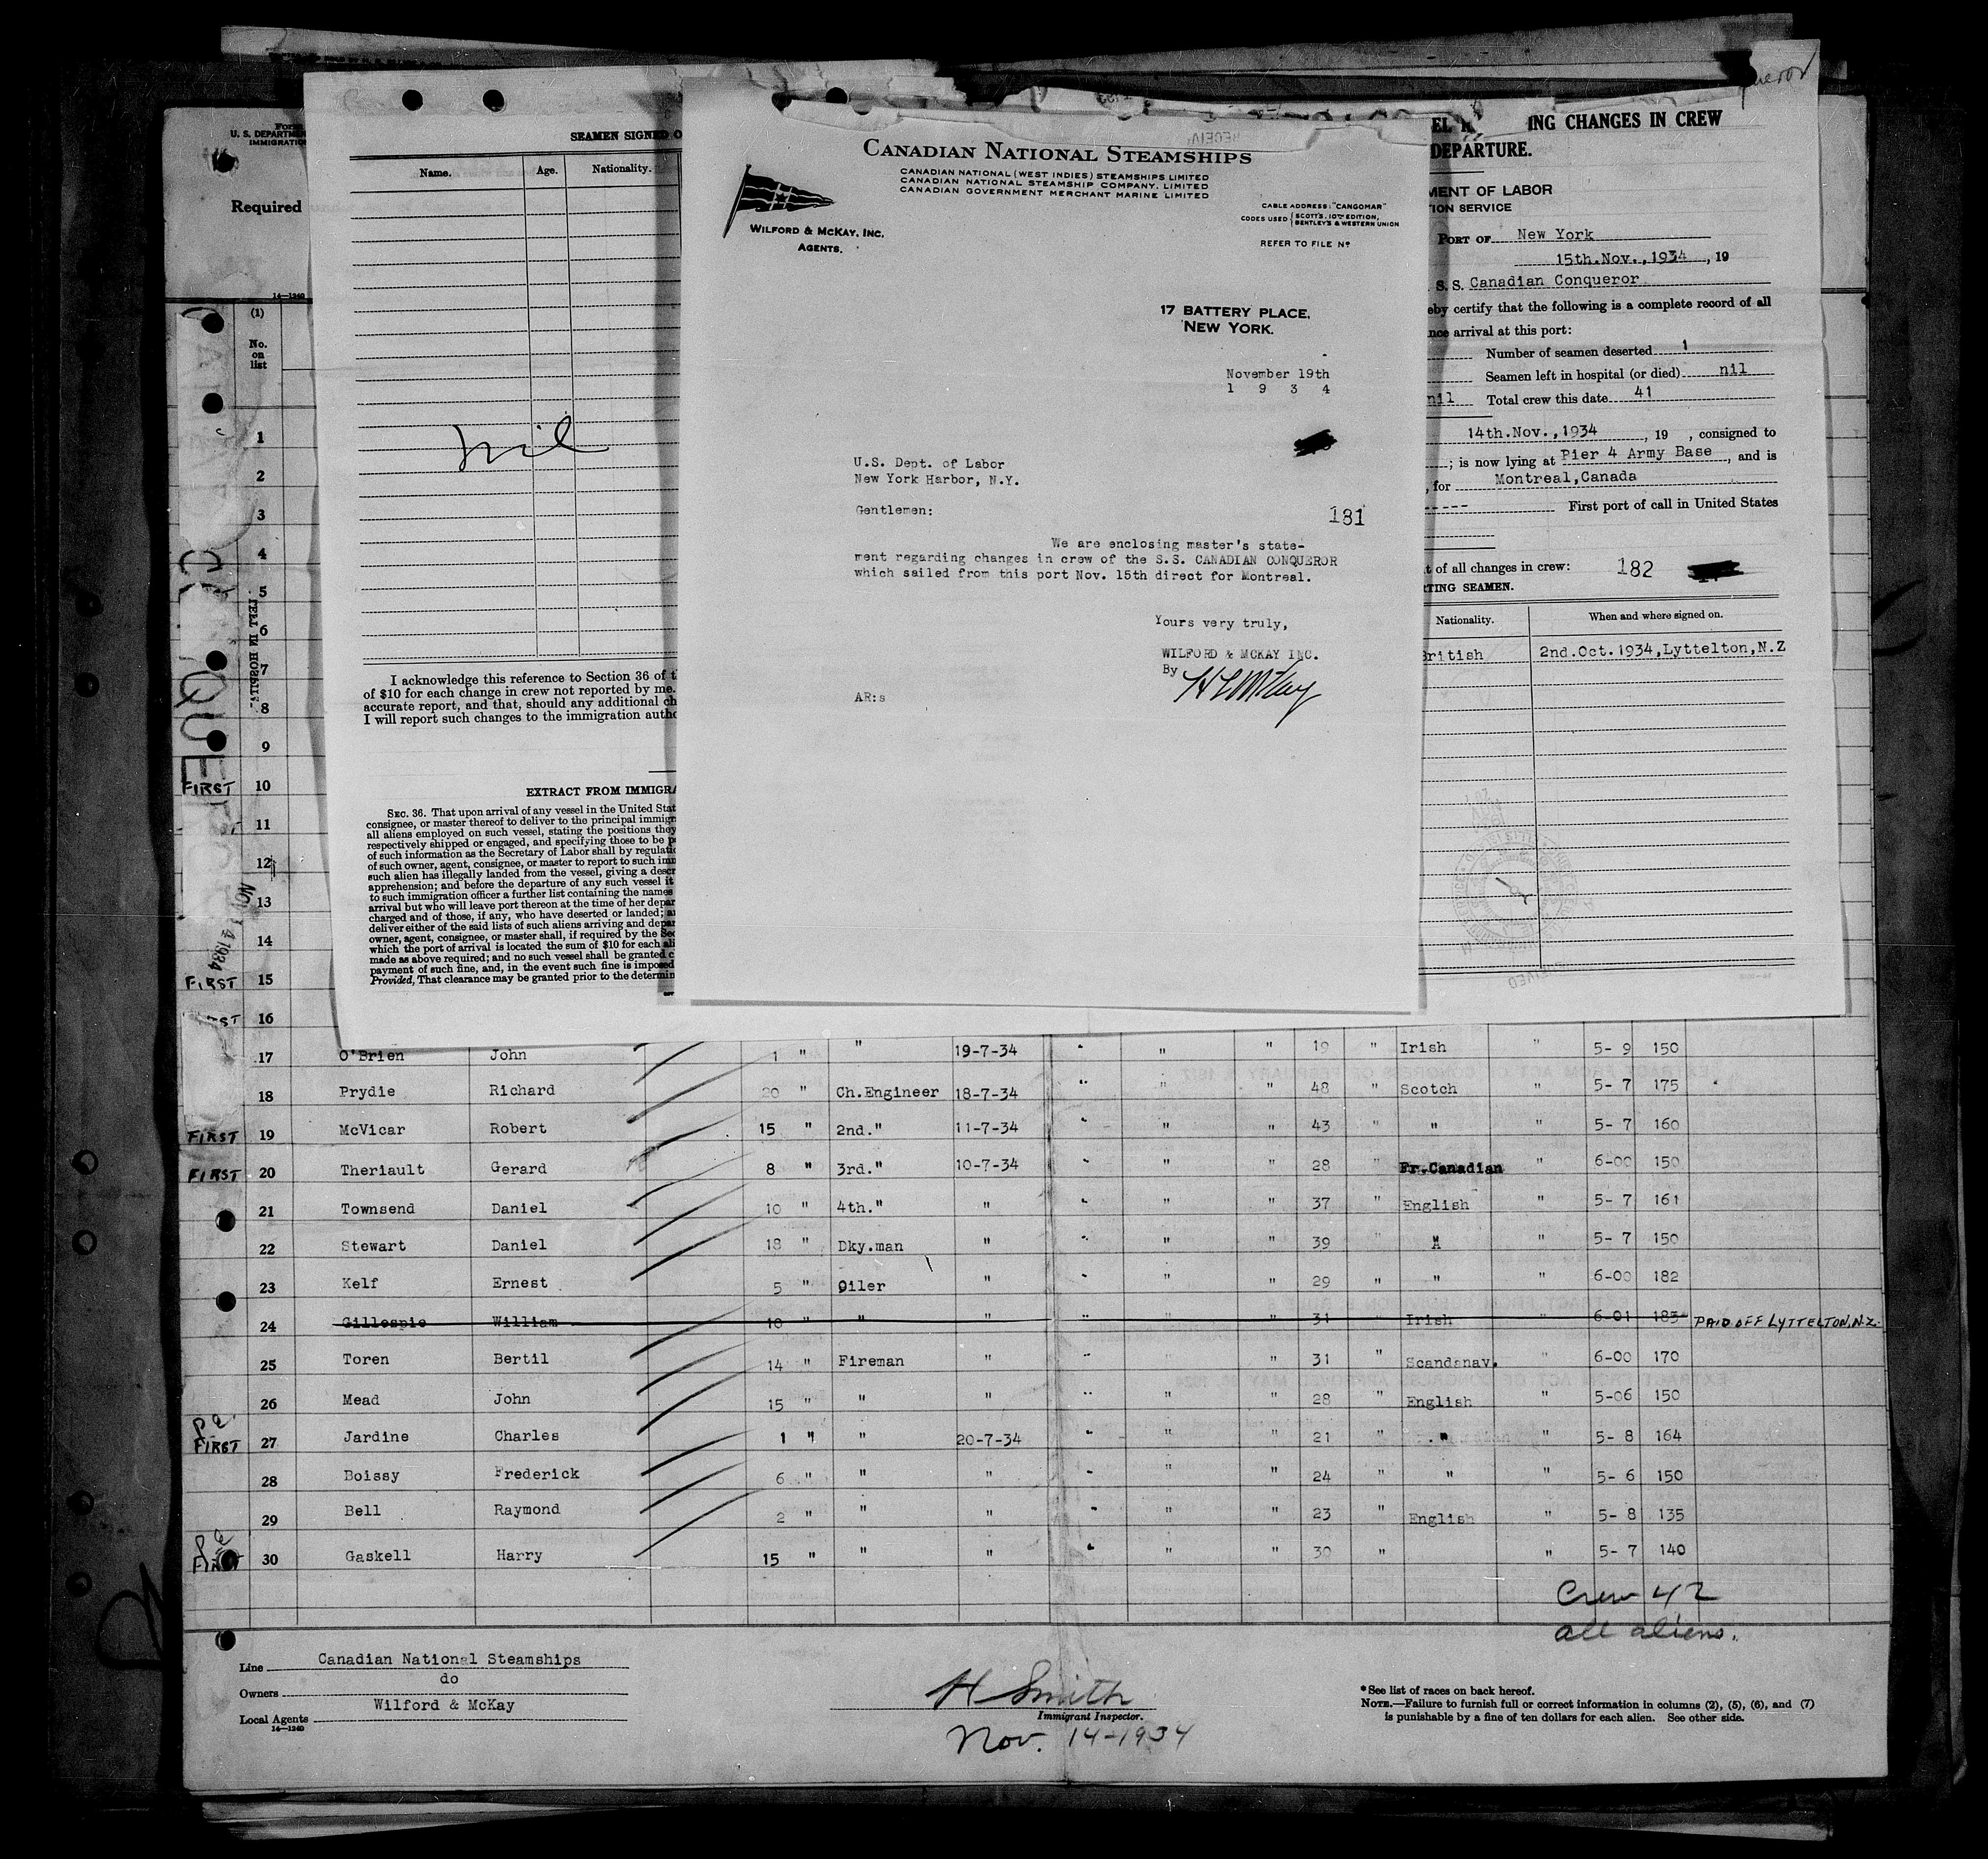 Form
U. S. DEPARTMEN
IMMIGRATION
Required
14—1240
(1)
No.
on
list
SEAMEN SIGNED O
Name. Age. Nationality.
nil
I acknowledge this reference to Section 36 of t
of $10 for each change in crew not reported by me.
accurate report, and that, should any additional ch
I will report such changes to the immigration autho
EXTRACT FROM IMMIGRA
SEC. 36. That upon arrival of any vessel in the United Stat
consignee, or master thereof to deliver to the principal immigr
all aliens employed on such vessel, stating the positions they
respectively shipped or engaged, and specifying those to be p
of such information as the Secretary of Labor shall by regulatio
of such owner, agent, consignee, or master to report to such imm
such alien has illegally landed from the vessel, giving a descr
apprehension; and before the departure of any such vessel it
to such immigration officer a further list containing the names
arrival but who will leave port thereon at the time of her depar
charged and of those, if any, who have deserted or landed; a
deliver either of the said lists of such aliens arriving and depar
owner, agent, consignee, or master shall, if required by the Sec
which the port of arrival is located the sum of $10 for each ali
made as above required; and no such vessel shall be granted c
payment of such fine, and, in the event such fine is imposed
Provided, That clearance may be granted prior to the determin
CANADIAN NATIONAL STEAMSHIPS
CANADIAN NATIONAL (WEST INDIES) STEAMSHIPS LIMITED
CANADIAN NATIONAL STEAMSHIP COMPANY, LIMITED
CANADIAN GOVERNMENT MERCHANT MARINE LIMITED
CABLE ADDRESS: "CANGOMAR"
CODES USED SCOTT'S, 10TH EDITION,
BENTLEY'S & WESTERN UNION
WILFORD & MCKAY, INC.
AGENTS.
REFER TO FILE No
17 BATTERY PLACE,
NEW YORK.
November 19th
1 9 3 4
U.S. Dept. of Labor
New York Harbor, N.Y.
Gentlemen:
181
We are enclosing master's state-
ment regarding changes in crew of the S.S. CANADIAN CONQUEROR
which sailed from this port Nov. 15th direct for Montreal.
Yours very truly,
WILFORD & MCKAY INC.
By H L McKay
AR:s
ueror
EL R ING CHANGES IN CREW
DEPARTURE.
MENT OF LABOR
TION SERVICE
PORT OF New York
15th.Nov.,1934, 19
S. S. Canadian Conqueror
eby certify that the following is a complete record of all
nce arrival at this port:
Number of seamen deserted 1
Seamen left in hospital (or died) nil
nil Total crew this date 41
14th.Nov.,1934, 19 , consigned to
; is now lying at Pier 4 Army Base, and is
, for Montreal,Canada
----- First port of call in United States
t of all changes in crew: 182
RTING SEAMEN.
Nationality. When and where signed on.
British 2nd.Oct.1934,Lyttelton,N.Z
LEFT IN HOSPITAL
NOV 14 1934
1
2
3
4
5
6
7
8
9
FIRST 10
11
12
13
14
FIRST 15
16
17 O'Brien John 1 " " 19-7-34 " " " 19 " Irish " 5- 9 150
18 Prydie Richard 20 " Ch.Engineer 18-7-34 " " " 48 " Scotch " 5- 7 175
FIRST 19 McVicar Robert 15 " 2nd." 11-7-34 " " " 43 " " " 5- 7 160
FIRST 20 Theriault Gerard 8 " 3rd." 10-7-34 " " " 28 " Fr.Canadian " 6-00 150
21 Townsend Daniel 10 " 4th." " " " " 37 " English " 5- 7 161
22 Stewart Daniel 18 " Dky.man " " " " 39 " " " 5- 7 150
23 Kelf Ernest 5 " Oiler " " " " 29 " " " 6-00 182
24 Gillespie William 10 " " " " " " 31 " Irish " 6-01 185 PAID OFF LYTTELTON, N.Z.
25 Toren Bertil 14 " Fireman " " " " 31 " Scandanav. " 6-00 170
26 Mead John 15 " " " " " " 28 English " 5-06 150
FIRST 27 Jardine Charles 1 " " 20-7-34 " " " 21 " " " 5- 8 164
28 Boissy Frederick 6 " " " " " " 24 " " " 5- 6 150
29 Bell Raymond 2 " " " " " " 23 " English " 5- 8 135
FIRST 30 Gaskell Harry 15 " " " " " " 30 " " 5- 7 140
Crew 42
all aliens.
Line Canadian National Steamships
Owners do
Local Agents Wilford & McKay
14—1240
H Smith
Immigrant Inspector.
Nov. 14-1934
* See list of races on back hereof.
NOTE.—Failure to furnish full or correct information in columns (2), (5), (6), and (7)
is punishable by a fine of ten dollars for each alien. See other side.